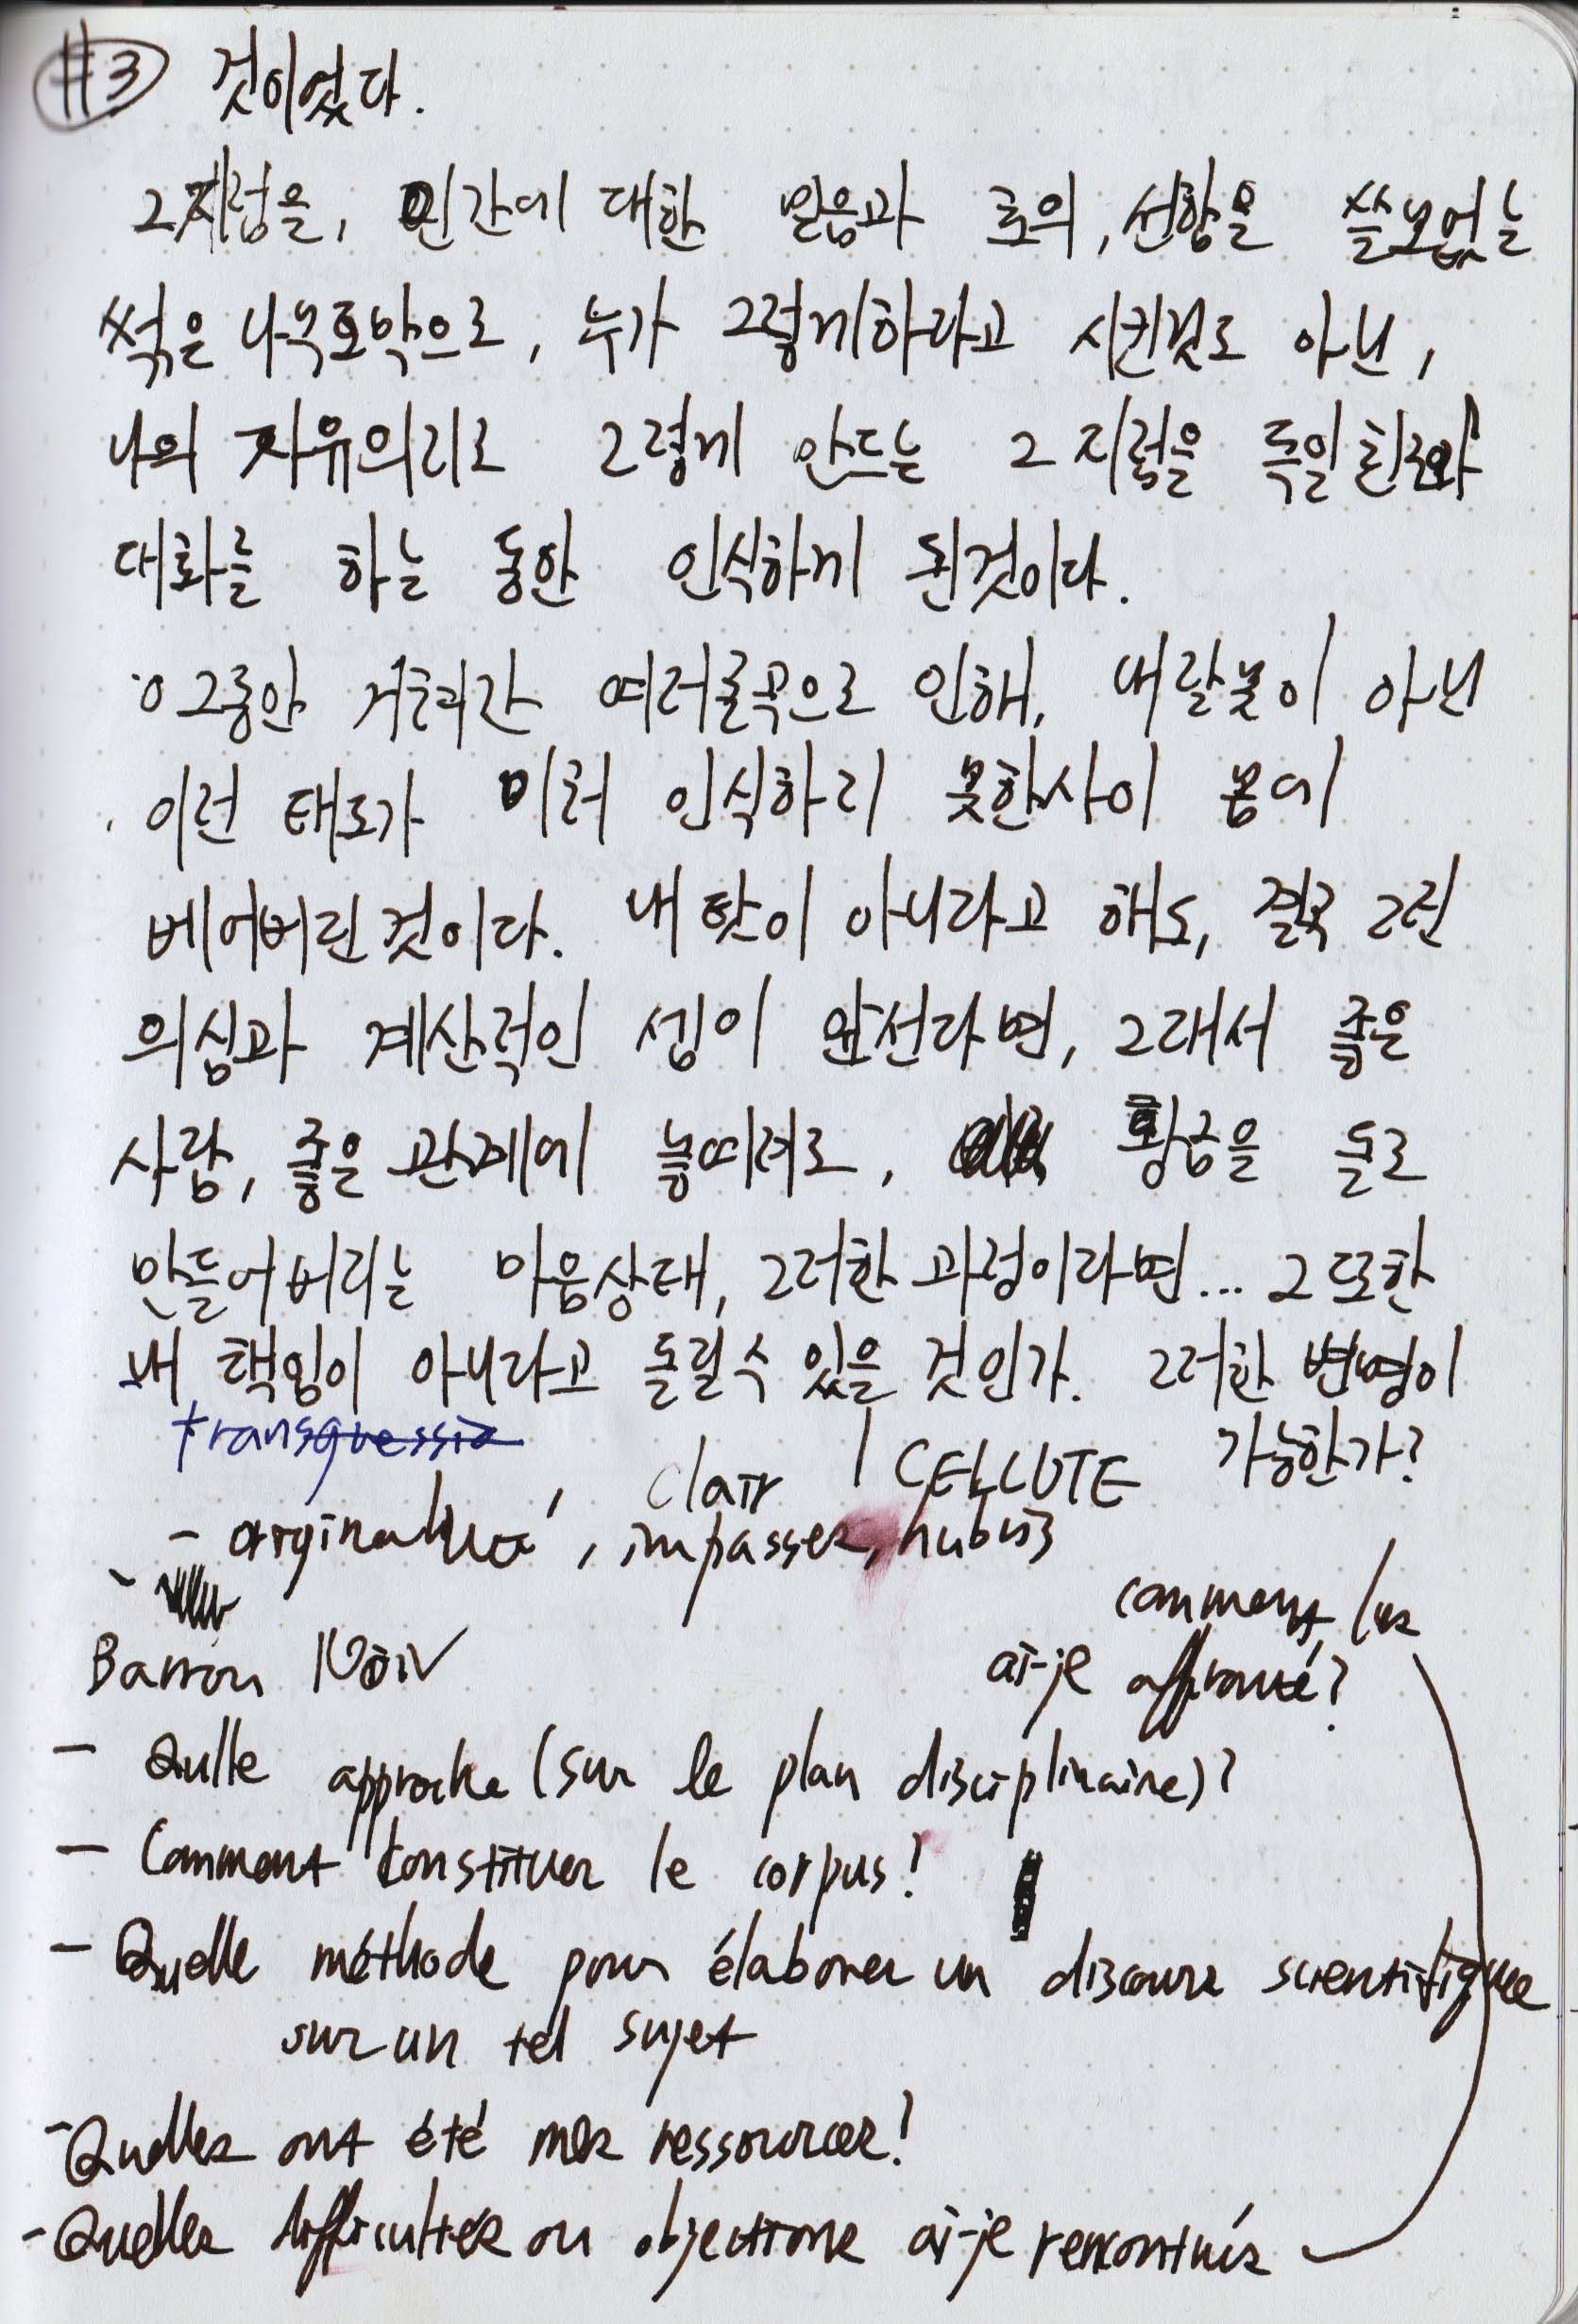 #3 것이었다.
그지점을, 인간에 대한 믿음과 호의, 선함을 쓸모없는
썩은 나무토막으로, 누가 그렇게하라고 시킨것도 아닌,
나의 자유의지로 그렇게 만드는 그 지점을 독일친구와
대화를 하는 동안 인식하게 된것이다.
그동안 거쳐간 여러굴곡으로 인해, 내잘못이 아닌
이런 태도가 미처 인식하지 못한사이 몸에
베어버린것이다. 내 탓이 아니라고 해도, 결국 그런
의심과 계산적인 셈이 앞선다면, 그래서 좋은
사람, 좋은 관계에 놓여져도, 황금을 돌로
만들어버리는 마음상태, 그러한 과정이라면... 그 또한
내 책임이 아니라고 돌릴수 있을 것인가. 그러한 변명이
가능한가?
transgressio
clair / CELLUTE
- impasses, hubris
comment les
ai-je affronté?
Barron Noir
- Qulle approche (sur le plan disciplinaire)?
- Comment constituer le corpus?
- Quelle méthode pour élaborer un discours scientifique
sur un tel sujet
- Quelles ont été mes ressources?
- Quelles difficultés ou objections ai-je rencontrés